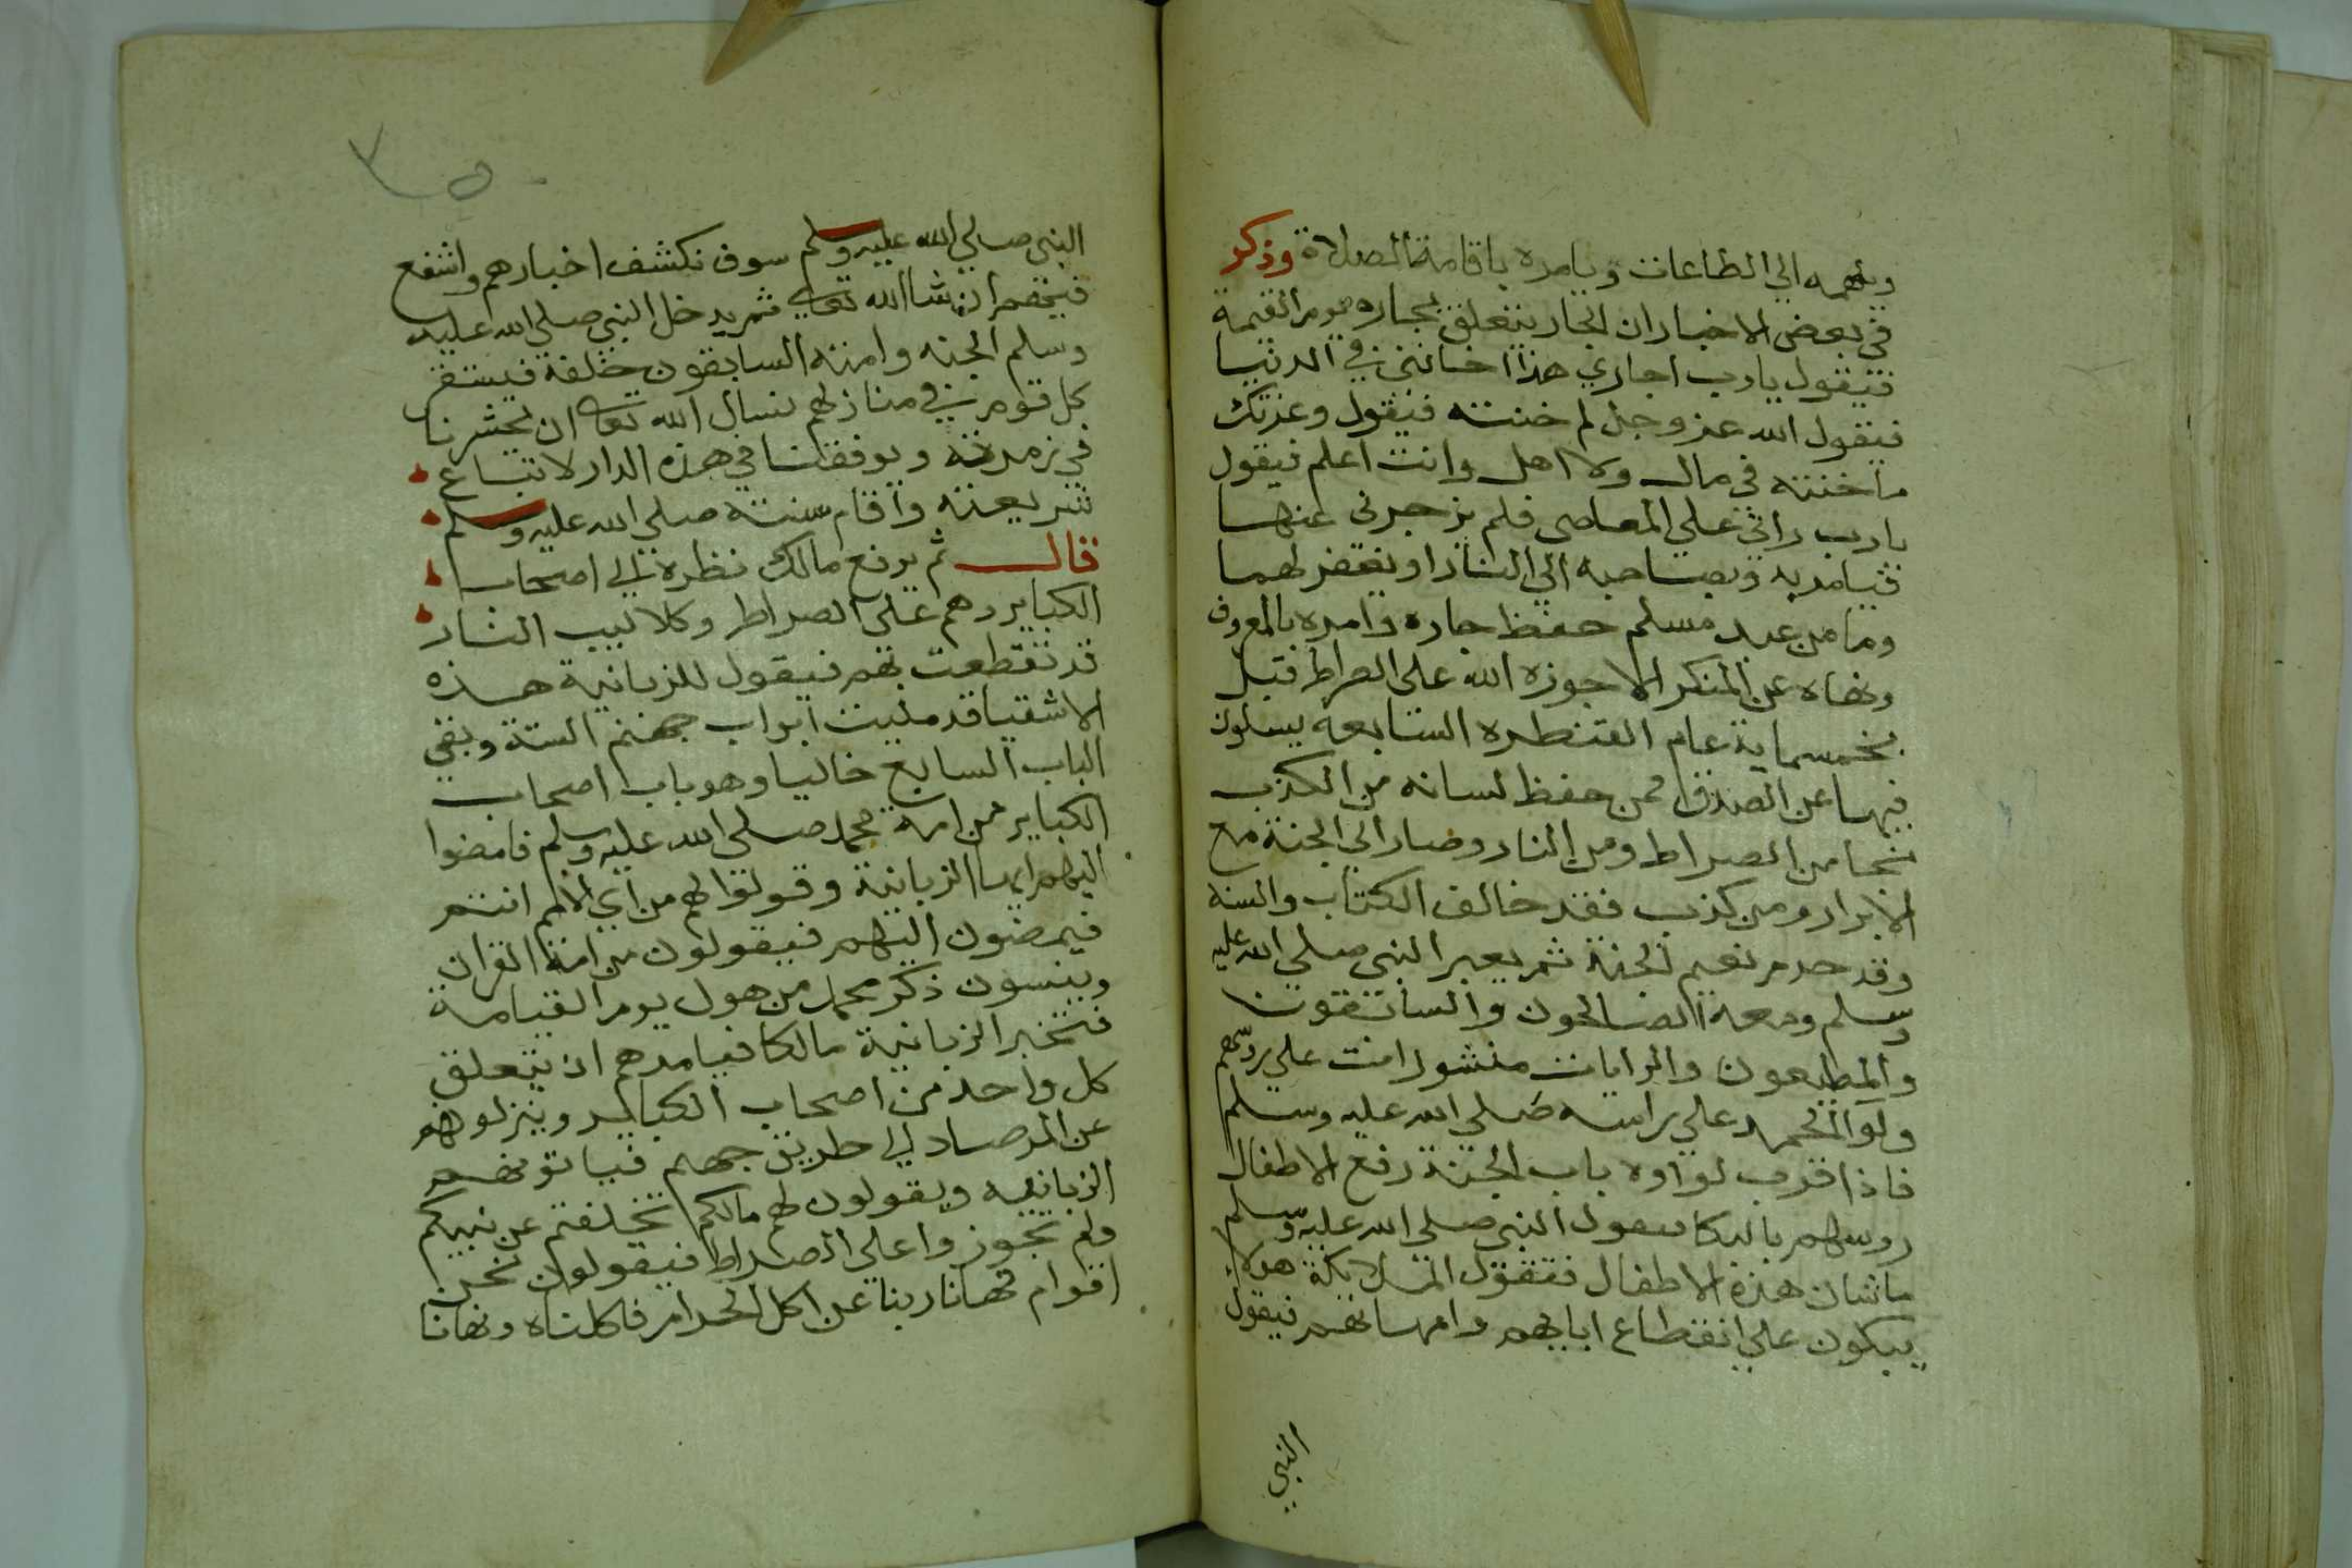 ويلهمه الي الطاعات ويامره باقامة الصلاة وذكر
في بعض الاخبار ان الجار يتعلق بجاره يوم القيمة
فيقول يارب اجاري هذا اخانني في الدنيا
فيقول الله عز وجل لم خنته فيقول وعزتك
ماخنته في مال ولا اهل وانت اعلم فيقول
يارب راني علي المعاصي فلم يزجرني عنها
فيامر به وبصاحبه الي النار او يغفر لهما
وما من عبد مسلم حفظ جاره وامره بالمعروف
ونهاه عن المنكر الا جوزه الله علي الصراط قبل
بخمسماية عام القنطره السابعه يسلون
فيها عن الصدق فمن حفظ لسانه من الكذب
نجا من الصراط ومن النار وصار الي الجنة مع
الابرار ومن كذب فقد خالف الكتاب والسنه
وقد حرم نعيم الجنة ثم يعبر النبي صلي الله عليه
وسلم ومعه الصالحون والسابقون
والمطيعون والرايات منشورات علي روسهم
ولوا الحمد علي راسه صلي الله عليه وسلم
فاذا قرب لواوه باب الجنة رفع الاطفال
روسهم بالبكا فيقول النبي صلي الله عليه وسلم
ماشان هذه الاطفال فتقول الملايكة هولاء
يبكون علي انقطاع ابايهم وامهاتهم فيقول
النبي
النبي صلي الله عليه وسلم سوف نكشف اخبارهم واشفع
فيهم ان شا الله تعالى ثم يدخل النبي صلي الله عليه
وسلم الجنه وامته السابقون خلفه فيستقر
كل قوم في منازلهم نسال الله تعالى ان يحشرنا
في زمرته ويوفقنا في هذه الدار لاتباع
شريعته واقام سنته صلي الله عليه وسلم
قال ثم يرفع مالك نظره الي اصحاب
الكباير وهم علي الصراط وكلاليب النار
قد تقطعت بهم فيقول للزبانية هذه
الاشقيا قد مليت ابواب جهنم الستة وبقي
الباب السابع خاليا وهو باب اصحاب
الكباير من امة محمد صلي الله عليه وسلم فامضوا
اليهم ايها الزبانية وقولوا لهم من اي الامم انتم
فيمضون اليهم فيقولون من امة القران
وينسون ذكر محمد من هول يوم القيامة
فتخبر الزبانية مالكا فيامرهم ان يتعلق
كل واحد من اصحاب الكباير وينزلوهم
عن المرصاد الي طريق جهنم فياتونهم
الزبانيه ويقولون لهم مالكم تخلفتم عن نبيكم
ولم تجوزوا علي الصراط فيقولون نحن
اقوام نهانا ربنا عن اكل الحرام فاكلناه ونهانا